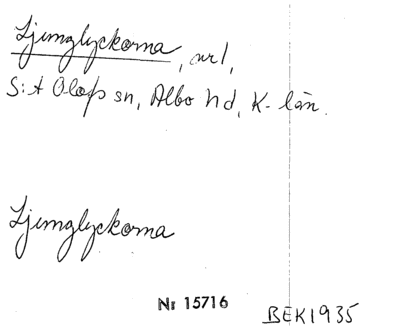 Ljunglyckorna, url,
S:t Olofs sn, Albo hd, K-län.
Ljunglyckorna
Nr 15716
BEK1935